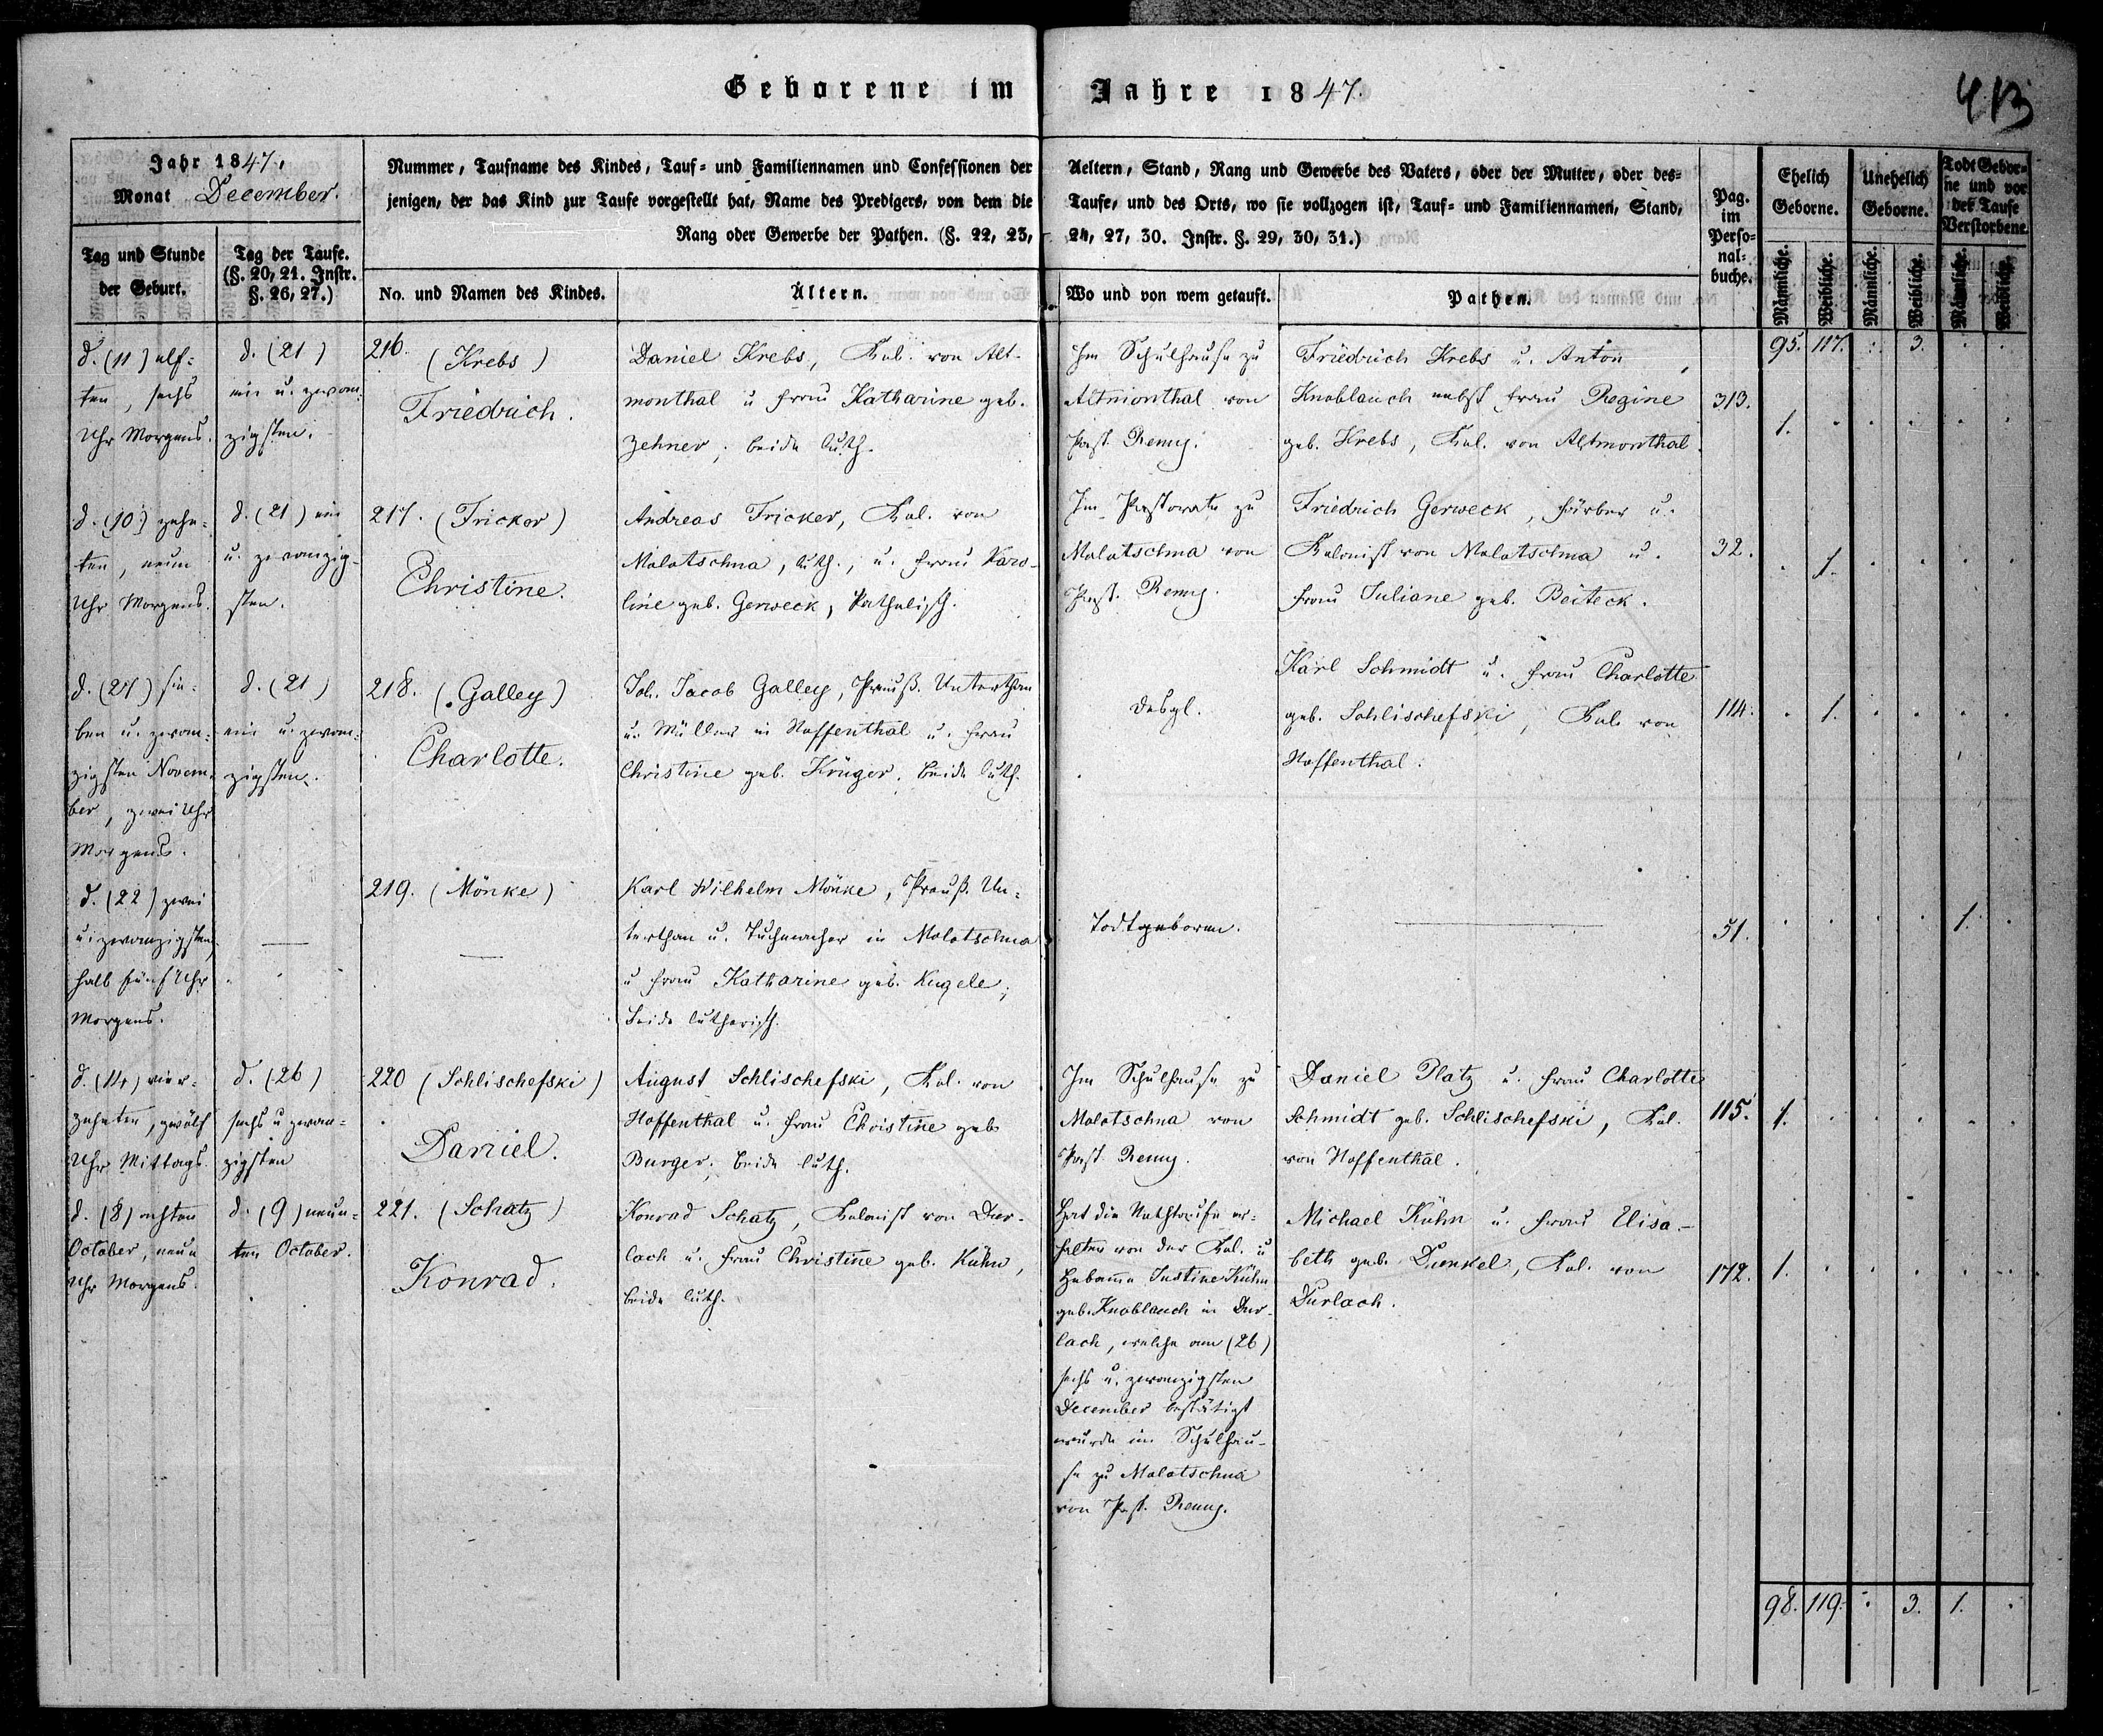 Geborene im Jahre 1847.
413
Jahr 1847.
Monat December.
Tag und Stunde
der Geburt.
Tag der Taufe.
(§. 20, 21. Instr.
§. 26, 27.)
Nummer, Taufname des Kindes, Tauf- und Familiennamen und Confessionen der
jenigen, der das Kind zur Taufe vorgestellt hat, Name des Predigers, von dem die
Rang oder Gewerbe der Pathen. (§. 22, 23,
No. und Namen des Kindes.
Ältern.
Aeltern, Stand, Rang und Gewerbe des Vaters, oder der Mutter, oder des-
Taufe, und des Orts, wo sie vollzogen ist, Tauf- und Familiennamen, Stand,
24, 27, 30. Instr. §. 29, 30, 31.)
Wo und von wem getauft.
Pathen.
Pag.
im
Perso-
nal-
buche.
Ehelich
Geborne.
Unehelich
Geborne.
Todt Gebor-
ne und vor
der Taufe
Verstorbene.
Männliche.
Weibliche.
Männliche.
Weibliche.
Männliche.
Weibliche.
95. 117. : 3. . .
d. (11) elf-
ten, sechs
Uhr Morgens.
d. (21)
ein u. zwan-
zigsten.
216.
(Krebs)
Friedrich.
Daniel Krebs, Kol. von Alt-
monthal u Frau Katharine geb.
Zehner; beide luth.
Im Schulhause zu
Altmonthal von
Past. Remy.
Friedrich Krebs u. Anton
Knoblauch nebst Frau Regine
geb. Krebs, Kol. von Altmonthal.
313.
1. . . . . .
d. (10) zehn-
ten, neun
Uhr Morgens.
d. (21) ein
u. zwanzig-
sten.
217. (Fricker)
Christine.
Andreas Fricker, Kol. von
Molotschna, luth., u. Frau Karo-
line geb. Gerweck, katholisch.
Im Pastorate zu
Molotschna von
Past. Remy.
Friedrich Gerweck, Färber u.
Kolonist von Molotschna u.
Frau Juliane geb. Beiteck.
32.
. 1. . . . .
d. (27) sie-
ben u. zwan-
zigsten Novem-
ber, zwei Uhr
Morgens.
d. (21)
ein u. zwan-
zigsten.
218. (Galley)
Charlotte.
Joh. Jacob Galley, Preuß. Unterthan
u. Müller in Hoffenthal u. Frau
Christine geb. Krüger; beide luth.
desgl.
Karl Schmidt u. Frau Charlotte
geb. Schlischefski, Kol. von
Hoffenthal.
114.
. 1. . . . .
d. (22) zwei
u. zwanzigsten,
halb fünf Uhr
Morgens.
219. (Mönke)
Karl Wilhelm Mönke, Preuß. Un-
terthan u. Tuchmacher in Molotschna
u Frau Katharine geb. Kugele;
beide lutherisch.
Todtgeboren.
31.
. . . . 1. .
d. (14) vier-
zehnten, zwölf
Uhr Mittags.
d. (26)
sechs u zwan-
zigsten
220 (Schlischefski)
Daniel.
August Schlischefski, Kol. von
Hoffenthal u. Frau Christine geb
Burger; beide luth.
Im Schulhause zu
Molotschna von
Past. Remy.
Daniel Platz u. Frau Charlotte
Schmidt geb. Schlischefski, Kol.
von Hoffenthal.
115.
1. . . . . .
d. (8) achten
October, neun
Uhr Morgens.
d. (9) neun-
ten October.
221. (Schatz)
Konrad.
Konrad Schatz, Kolonist von Dur-
lach u. Frau Christine geb. Kühn,
beide luth.
Hat die Nothtaufe er-
halten von der Kol. u
Hebame Justine Kühn
geb. Knoblauch in Dur-
lach, welche am (26)
sechs u. zwanzigsten
December bestätigt
wurde im Schulhau-
se zu Molotschna
von Past. Remy.
Michael Kühn u. Frau Elisa-
beth geb. Dunkel, Kol. von
Durlach.
172.
1. . . . . .
98. 119. : 3. 1. .